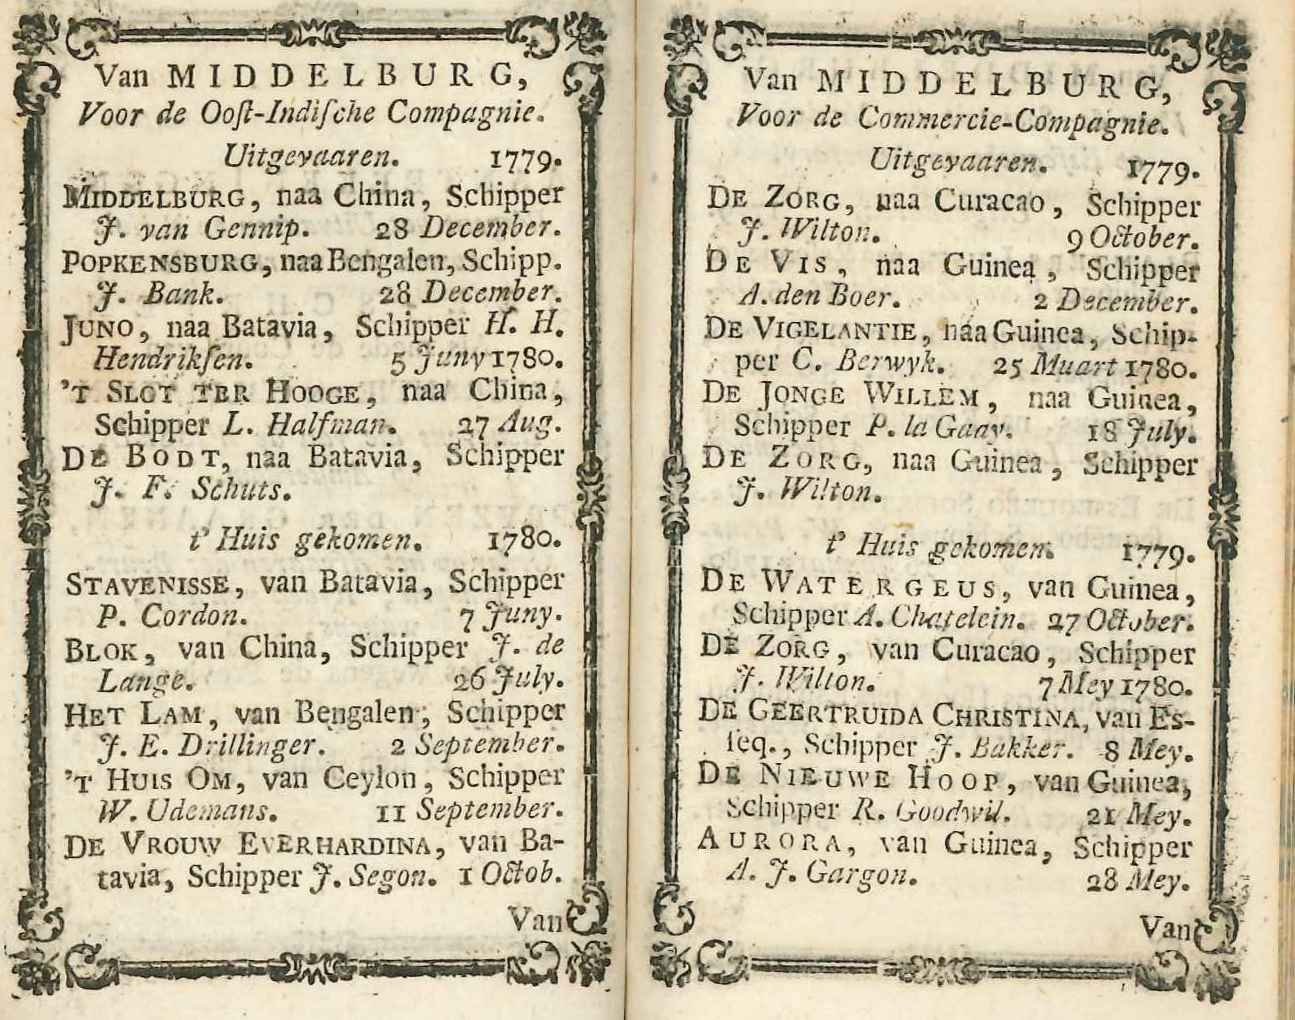 Van MIDDELBURG,
Voor de Ooſt-Indiſche Compagnie.
Uitgevaaren. 1779.
MIDDELBURG, naa China, Schipper
J. van Gennip. 28 December.
POPKENSBURG, naa Bengalen, Schipp.
J. Bank. 28 December.
JUNO, naa Batavia, Schipper H. H.
Hendrikſen. 5 Juny 1780.
'T SLOT TER HOOGE, naa China,
Schipper L. Halfman. 27 Aug.
DE BODT, naa Batavia, Schipper
J. F. Schuts.
t' Huis gekomen. 1780.
STAVENISSE, van Batavia, Schipper
P. Cordon. 7 Juny.
BLOK, van China, Schipper J. de
Lange. 26 July.
HET LAM, van Bengalen, Schipper
J. E. Drillinger. 2 September.
'T HUIS OM, van Ceylon, Schipper
W. Udemans. 11 September.
DE VROUW EVERHARDINA, van Ba-
tavia, Schipper J. Segon. 1 Octob.
Van
Van MIDDELBURG,
Voor de Commercie-Compagnie.
Uitgevaaren. 1779.
DE ZORG, naa Curacao, Schipper
J. Wilton. 9 October.
DE VIS, naa Guinea, Schipper
A. den Boer. 2 December.
DE VIGELANTIE, naa Guinea, Schip-
per C. Berwyk. 25 Maart 1780.
DE JONGE WILLEM, naa Guinea,
Schipper P. la Gaay. 18 July.
DE ZORG, naa Guinea, Schipper
J. Wilton.
t' Huis gekomen. 1779.
DE WATERGEUS, van Guinea,
Schipper A. Chatelein. 27 October.
DE ZORG, van Curacao, Schipper
J. Wilton. 7 Mey 1780.
DE GEERTRUIDA CHRISTINA, van Es-
ſeq., Schipper J. Bakker. 8 Mey.
DE NIEUWE HOOP, van Guinea,
Schipper R. Goodwil. 21 Mey.
AURORA, van Guinea, Schipper
A. J. Gargon. 28 Mey.
Van